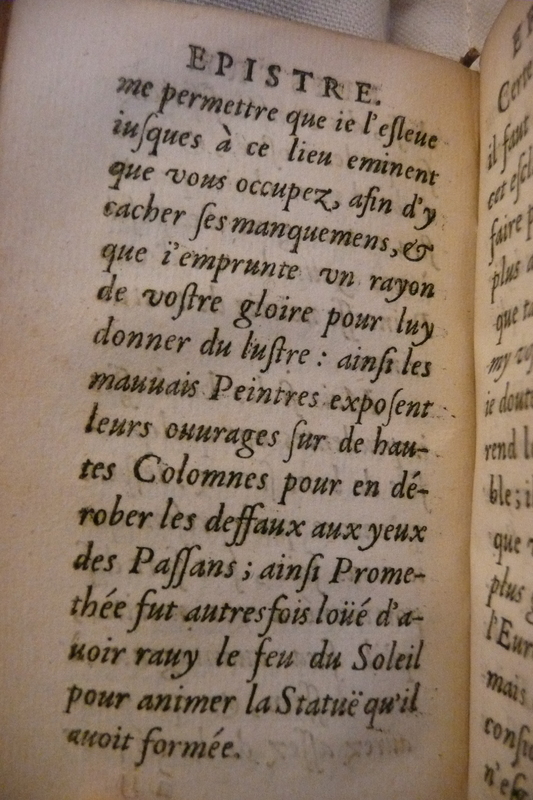 EPISTRE.
me permettre que ie l'eſleue
iuſques à ce lieu eminent
que vous occupez, afin d'y
cacher ſes manquemens, &
que i'emprunte vn rayon
de voſtre gloire pour luy
donner du luſtre : ainſi les
mauuais Peintres expoſent
leurs ouurages ſur de hau-
tes Colomnes pour en dé-
rober les deffaux aux yeux
des Paſſans ; ainſi Prome-
thée fut autresfois loüé d'a-
uoir rauy le feu du Soleil
pour animer la Statuë qu'il
auoit formée.
il faut
faire
plus
que
my
ie
rend
ble; i
que
plus
l'Eur
mais